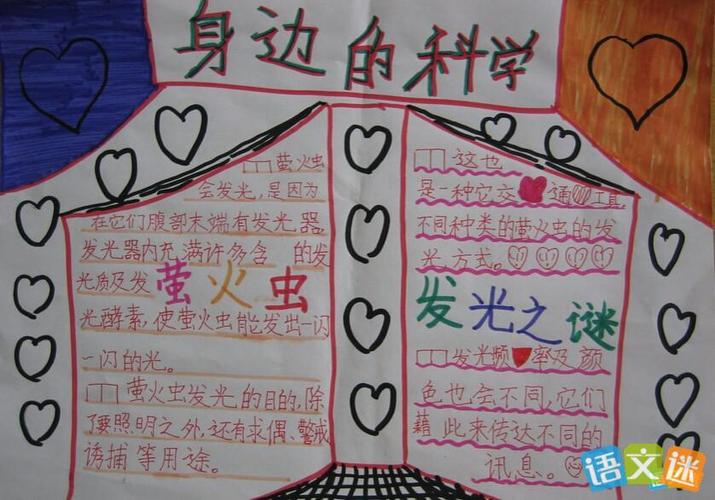 身边的科学
萤火虫
会发光,是因为
在它们腹部末端有发光器,
发光器内充满许多含 的发
光质及发
萤火虫
光酵素,使萤火虫能发出一闪
一闪的光。
萤火虫发光的目的,除
了要照明之外,还有求偶、警戒
诱捕等用途。
这也
是一种它交 通 工具
不同种类的萤火虫的发
光方式。
发光之谜
发光频 率及颜
色也会不同,它们
藉此来传达不同的
讯息。
语文迷